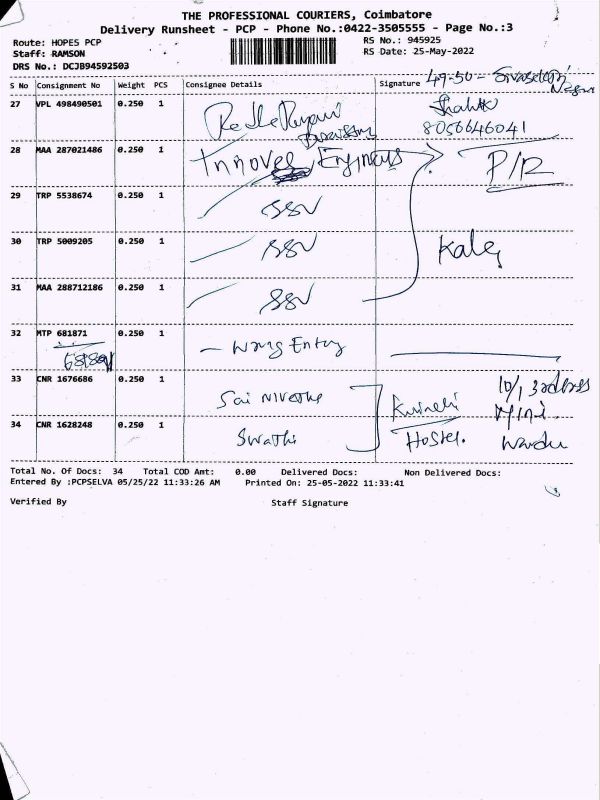 THE PROFESSIONAL COURIERS, Coimbatore
Delivery Runsheet - PCP - Phone No.:0422-3505555 - Page No.:3
Route: HOPES PCP
Staff: RAMSON
DRS No.: DCJB94592503
RS No.: 945925
RS Date: 25-May-2022
S No Consignment No Weight PCS Consignee Details Signature 49-50 -
27 VPL 498490501 0.250 1
8056646041
28 MAA 287021486 0.250 1 P/R
29 TRP 5538674 0.250 1 SSV
30 TRP 5009205 0.250 1 SSV
31 MAA 288712186 0.250 1 SSV
32 MTP 681871 0.250 1 - Wrong Entry
33 CNR 1676686 0.250 1 Sai
34 CNR 1628248 0.250 1 Swathi Hostel.
Total No. Of Docs: 34 Total COD Amt: 0.00 Delivered Docs: Non Delivered Docs:
Entered By :PCPSELVA 05/25/22 11:33:26 AM Printed On: 25-05-2022 11:33:41
Verified By Staff Signature